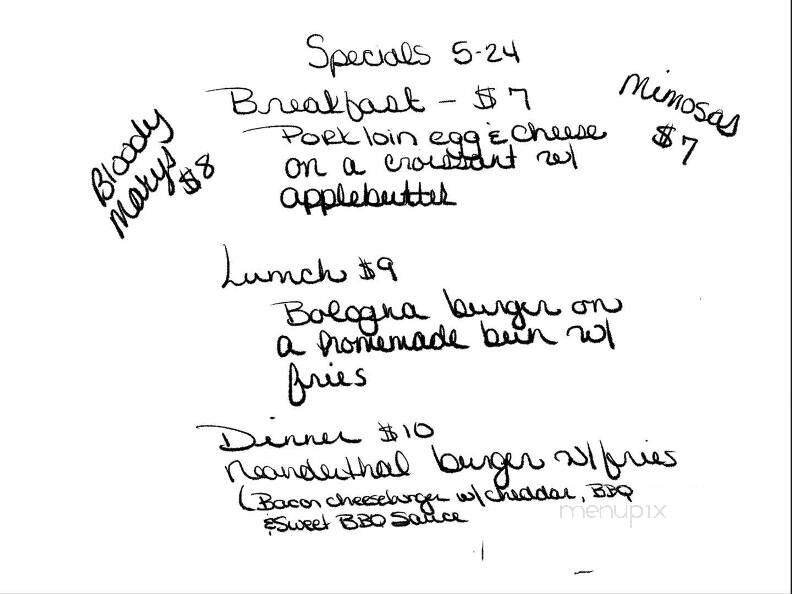 Specials 5-24
Breakfast - $7
Pork loin egg & cheese
on a croissant w/
applebutter
Bloody
Marys
$8
Mimosas
$7
Lunch $9
Bologna burger on
a homemade bun w/
fries
Dinner $10
Neanderthal burger w/ fries
(Bacon cheeseburger w/ cheddar, BBQ
& Sweet BBQ Sauce
menupix